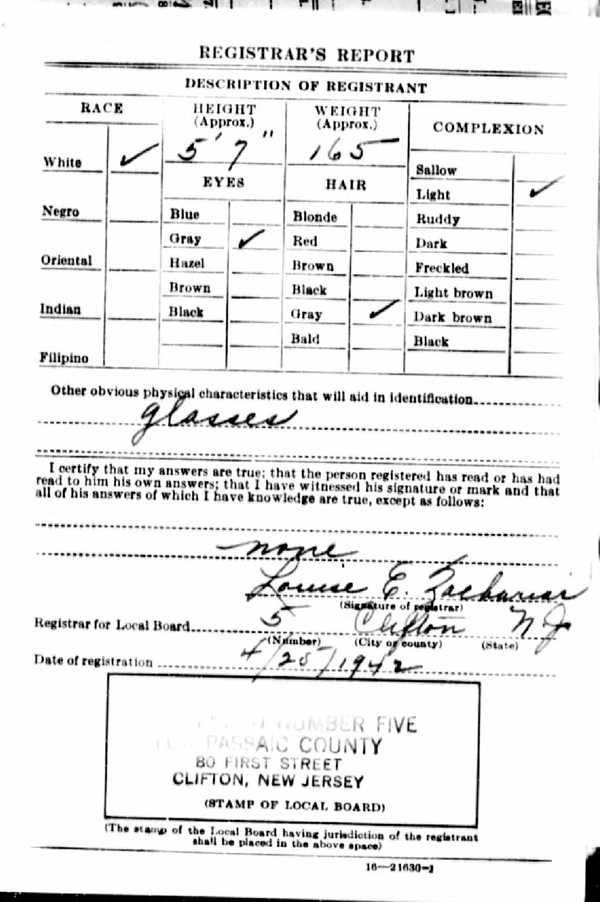 REGISTRAR'S REPORT
DESCRIPTION OF REGISTRANT
RACE
HEIGHT
(Approx.)
WEIGHT
(Approx.)
COMPLEXION
White ✓
5' 7"
165
Sallow
EYES
HAIR
Light ✓
Negro
Blue
Blonde
Ruddy
Gray ✓
Red
Dark
Oriental
Hazel
Brown
Freckled
Brown
Black
Light brown
Indian
Black
Gray ✓
Dark brown
Bald
Black
Filipino
Other obvious physical characteristics that will aid in identification
glasses
I certify that my answers are true; that the person registered has read or has had
read to him his own answers; that I have witnessed his signature or mark and that
all of his answers of which I have knowledge are true, except as follows:
none
Louise E.
(Signature of registrar)
Registrar for Local Board 5 Clifton N J
(Number) (City or county) (State)
Date of registration 4/25/1942
NUMBER FIVE
PASSAIC COUNTY
80 FIRST STREET
CLIFTON, NEW JERSEY
(STAMP OF LOCAL BOARD)
(The stamp of the Local Board having jurisdiction of the registrant
shall be placed in the above space)
16—21630-1